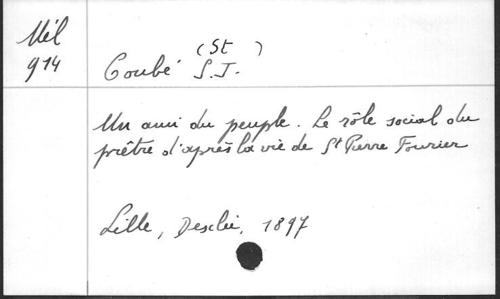 Mél
914
(St )
Coubé S.J.
Un ami du peuple. Le rôle social du
prêtre d'après la vie de St Pierre Fourier
Lille, Desclée, 1897